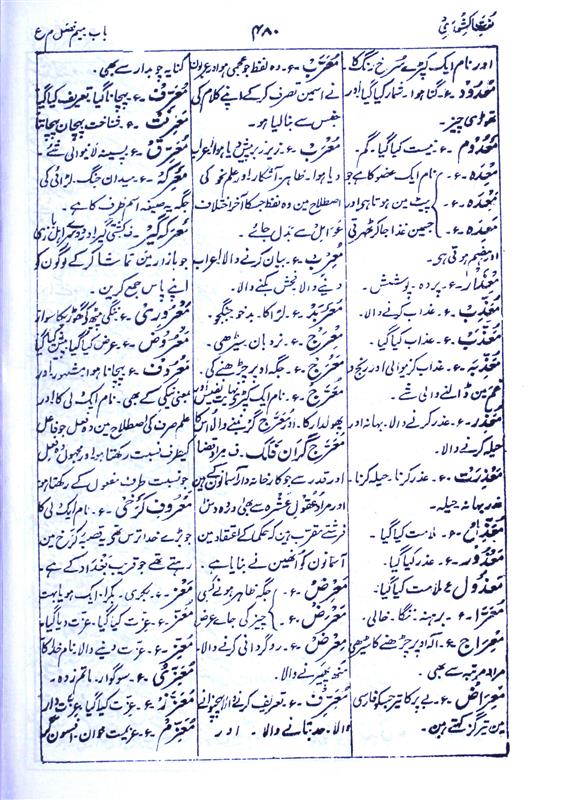 لغات کشوری
۴۸۰
باب میم فصل م ع
اور نام ایک کپڑے سرخ رنگ کا۔
معدود۔ ع۔ گنا ہوا۔ شمار کیا گیا اور
تھوڑی چیز۔
معدوم۔ ع۔ نیست کیا گیا۔ گم۔
معدہ۔ ع۔ نام ایک عضو کا ہے جو
معدہ۔ ع۔ پیٹ مین ہوتا ہی اور
معدہ۔ ع۔ جسمین غذا جا کر ٹھہرتی
اور ہضم ہوتی ہی۔
معذار۔ ع۔ پردہ۔ پوشش۔
معذب۔ ع۔ عذاب کرنے والا۔
معذب۔ ع۔ عذاب کیا گیا۔
معذبہ۔ ع۔ عذاب کرنیوالی اور رنج و
غم مین ڈالنے والی شے۔
معذر۔ ع۔ عذر کرنے والا۔ بہانہ اور
حیلہ کرنے والا۔
معذرت۔ ع۔ عذر کرنا۔ حیلہ کرنا۔
عذر بہانہ حیلہ۔
ع۔ ملامت کیا گیا۔
معذور۔ ع۔ عذر کیا گیا۔
معذول۔ ع۔ ملامت کیا گیا۔
معرا۔ ع۔ برہنہ۔ ننگا۔ خالی۔
معراج۔ ع۔ آلہ اوپر چڑھنے کا سیڑھی
مراد مرتبہ سے بھی۔
معراض۔ ع۔ بے پر کا تیر جسکو فارسی
مین تیر گز کہتے ہین۔
معرب۔ ع۔ وہ لفظ جو عجمی ہو اور عربون
نے اسمین تصرف کر کے اپنے کلام کی
جنس سے بنا لیا ہو۔
معرب۔ ع۔ زیر زبر پیش دیا ہوا۔ اعراب
دیا ہوا۔ ظاہر آشکار اور علم نحو کی
اصطلاح مین وہ لفظ جسکا آخر اختلاف
عوامل سے بدل جائے۔
معرب۔ ع۔ بیان کرنے والا۔ اعراب
دینے والا۔ فحش بکنے والا۔
معربد۔ ع۔ لڑاکا۔ بدخو۔ جنگجو۔
معرج۔ ع۔ نردبان سیڑھی۔
معرج۔ ع۔ جگہ اوپر چڑھنے کی۔
معرج۔ ع۔ نام ایک کپڑے نہایت نفیس اور
پھولدار کا۔ اور معرج گر بننے والا اس کا
معرج گران فلک۔ ف۔ مراد قضا
اور قدر سے جو کارخانہ دار آسمانون کے ہین
اور مراد عقول عشرہ سے بھی وہ دس
فرشتے مقرب ہین کہ حکما کے اعتقاد مین
آسمانون کو انھین نے بنایا ہے۔
معرض۔ ع۔ جگہ ظاہر ہونے کسی
معرض۔ ع۔ چیز کی جاے عرض
معرض۔ ع۔ روگردانی کرنے والا۔
منھ پھیرنے والا۔
معرف۔ ع۔ تعریف کرنے اور پہچنوانے
والا۔ حد بتانے والا۔ اور
کنایہ چوبدار سے بھی۔
معرف۔ ع۔ پہچانا گیا تعریف کیا گیا
معرفت۔ ع۔ شناخت پہچان پہچاننا
معرق۔ ع۔ پسینہ لانیوالی شے۔
معرکہ۔ ع۔ میدان جنگ۔ لڑائی کی
جگہ یہ صیغہ اسم ظرف کا ہے۔
معرکہ گیر۔ ف۔ کشتی گیر اور وہ
جو بازار مین تماشا کر کے لوگون کو
اپنے پاس جمع کرین۔
معروری۔ ع۔ ننگی پیٹھ کی گھوڑے کا سوار
معروض۔ ع۔ عرض کیا گیا پیش کیا گیا
معروف۔ ع۔ پہچانا ہوا مشہور اور
بمعنی نیکی کے بھی۔ نام ایک ولی کا اور
علم صرف کی اصطلاح مین وہ فعل جو فاعل
کیطرف نسبت رکھتا ہو اور مجہول وہ فعل
جو نسبت طرف مفعول کے رکھتا ہو
معروف کرخی۔ ع۔ نام ایک ولی کا
جو بڑے خدا ترس تھے یہ قصبہ کرخ مین
رہتے تھے جو قریب بغداد کے ہے۔
معز۔ ع۔ بکری۔ بکرا۔ ایک ہو یا بہت
معز۔ ع۔ عزت کیا گیا۔ عزت دیا گیا۔
معز۔ ع۔ عزت دینے والا نام خدا کا
معزی۔ ع۔ سوگوار۔ ماتم زدہ۔
معزز۔ ع۔ عزت کیا گیا۔ عزت دار
معزم۔ ع۔ عزیمت خوان۔ افسون گر